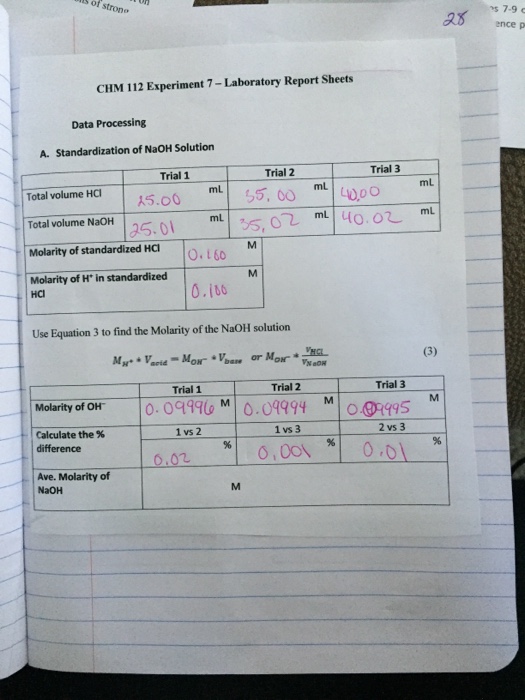 of strong
28
s 7-9
ence p
CHM 112 Experiment 7 – Laboratory Report Sheets
Data Processing
A. Standardization of NaOH Solution
Trial 1 Trial 2 Trial 3
Total volume HCl 25.00 mL 35.00 mL 40.00 mL
Total volume NaOH 25.01 mL 35.02 mL 40.02 mL
Molarity of standardized HCl 0.100 M
Molarity of H⁺ in standardized
HCl 0.100 M
Use Equation 3 to find the Molarity of the NaOH solution
M_H⁺ * V_acid = M_OH⁻ * V_base or M_OH⁻ * V_HCl / V_NaOH (3)
Trial 1 Trial 2 Trial 3
Molarity of OH⁻ 0.09996 M 0.09994 M 0.09995 M
Calculate the % 1 vs 2 1 vs 3 2 vs 3
difference 0.02 % 0.001 % 0.01 %
Ave. Molarity of
NaOH M